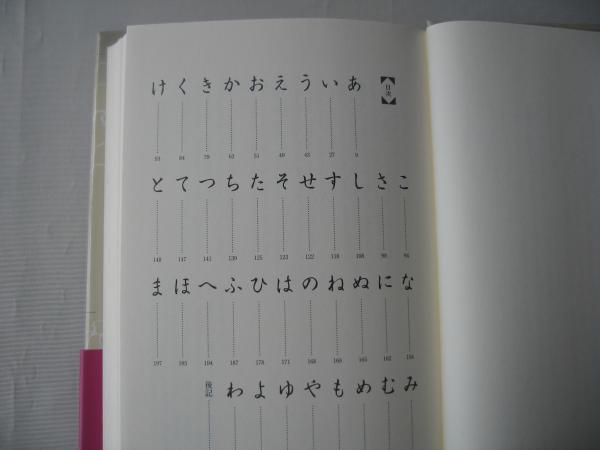 目次
あ 9
い 27
う
え 49
お 51
か 62
き 79
く 84
け 93
こ
さ
し 108
す 118
せ 122
そ 123
た 125
ち 139
つ 141
て 147
と 148
な 154
に 162
ぬ 165
ね
の 168
は 171
ひ 178
ふ 187
へ 194
ほ 195
ま 197
み
む
め
も
や
ゆ
よ
わ
後記